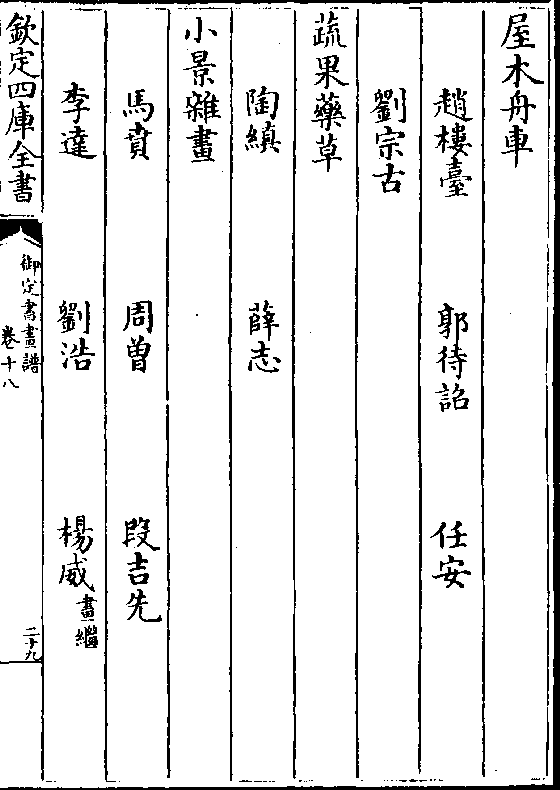 屋木舟車
趙樓臺 郭待詔 任安
劉宗古
蔬果藥草
陶縝 薛志
小景雜畫
馬賁 周曾 段吉先
李達 劉浩 楊威 畫繼
欽定四庫全書
御定書畫譜
卷十八
二十九